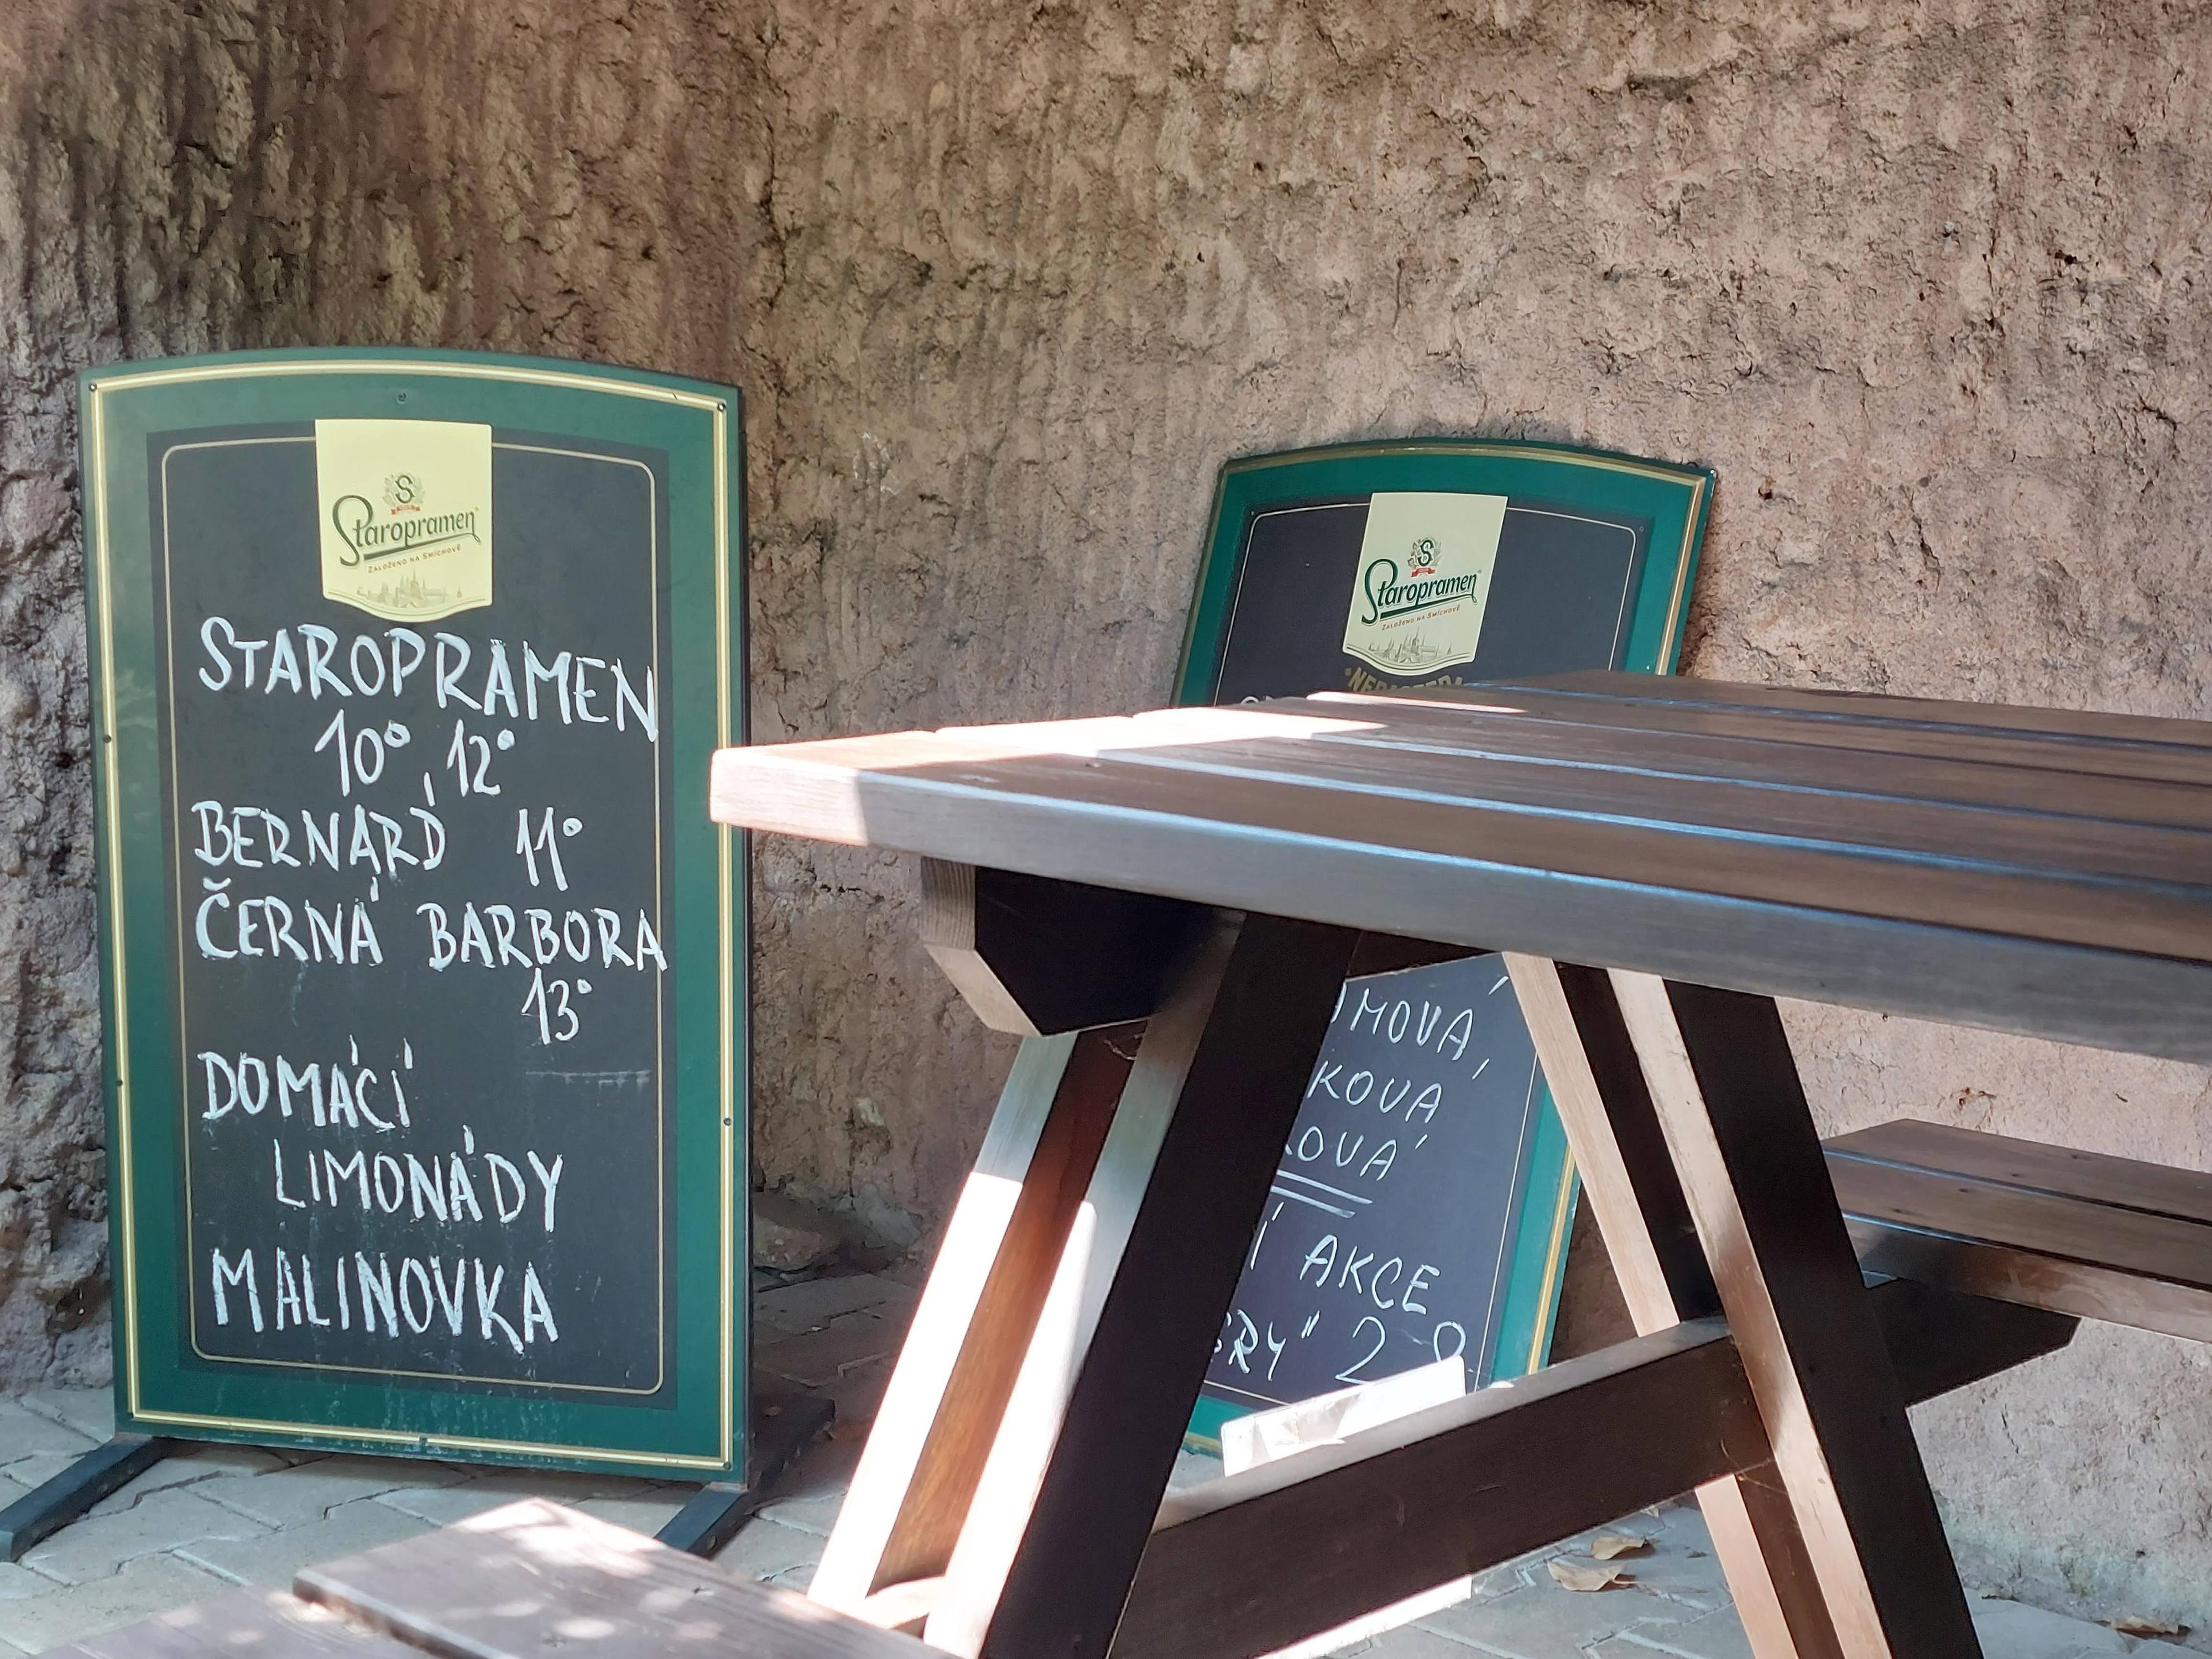 S
Staropramen
ZALOŽENO NA SMÍCHOVĚ
STAROPRAMEN
10°, 12°
BERNARD 11°
ČERNÁ BARBORA
13°
DOMÁCÍ
LIMONÁDY
MALINOVKA
S
Staropramen
ZALOŽENO NA SMÍCHOVĚ
MOVÁ,
KOVÁ
OVÁ
Í AKCE
RY" 2